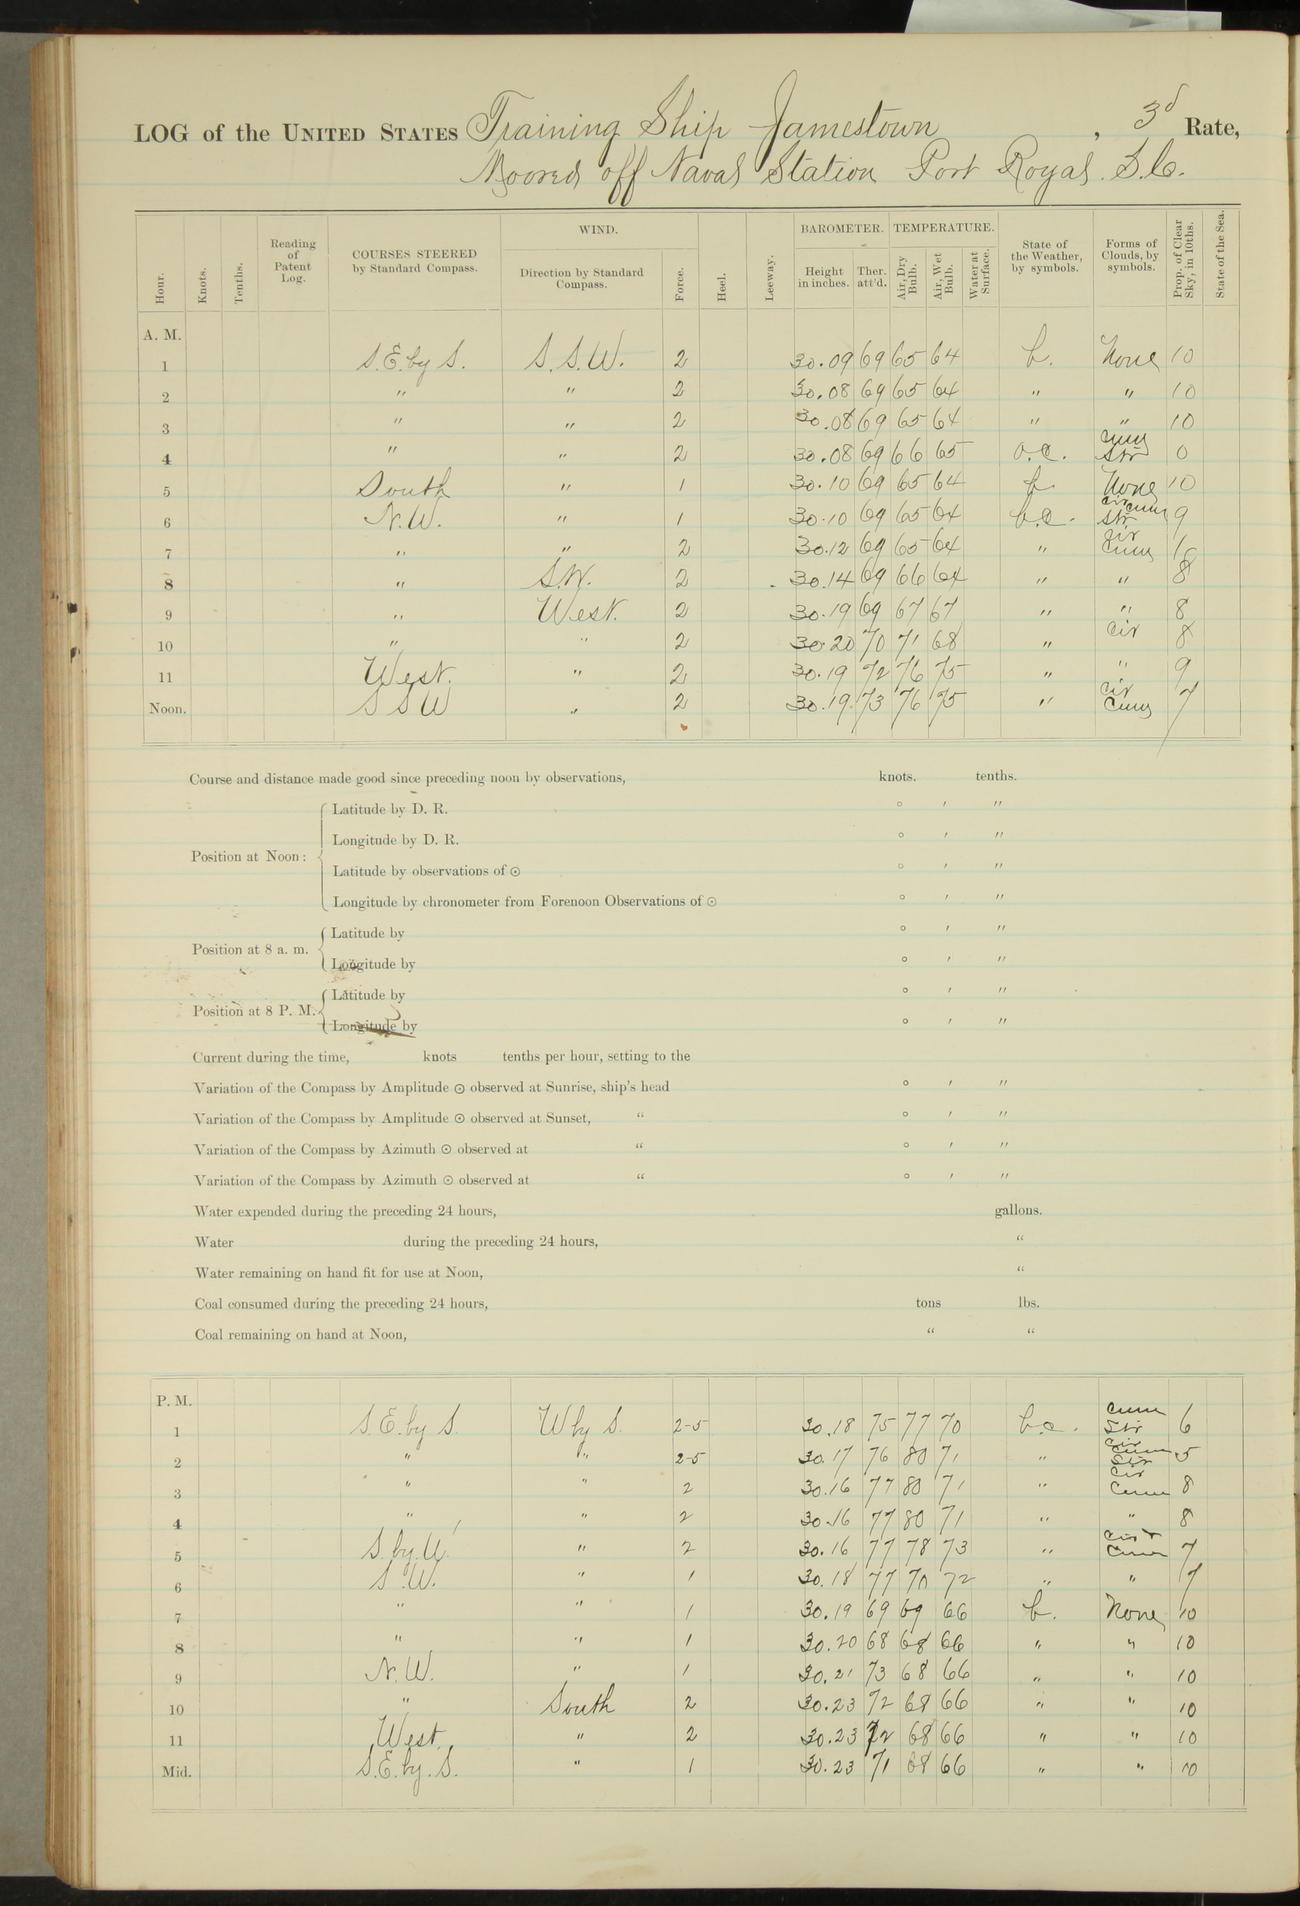 LOG of the UNITED STATES Training Ship Jamestown, 3d Rate,
Moored off Naval Station Port Royal S.C.
Hour. Knots. Tenths. Reading of Patent Log. COURSES STEERED by Standard Compass. WIND. Direction by Standard Compass. Force. Heel. Leeway. BAROMETER. Height in inches. Ther. att'd. TEMPERATURE. Air, Dry Bulb. Air, Wet Bulb. Water at Surface. State of the Weather, by symbols. Forms of Clouds, by symbols. Prop. of Clear Sky, in 10ths. State of the Sea.
A. M.
1 S.E. by S. S.S.W. 2 30.09 69 65 64 b. None 10
2 " " 2 30.08 69 65 64 " " 10
3 " " 2 30.08 69 65 64 " " 10
4 " " 2 30.08 69 66 65 o.c. Cum Str 0
5 South " 1 30.10 69 65 64 b. None 10
6 N.W. " 1 30.10 69 65 64 b.c. Cir Cum Str 9
7 " " 2 30.12 69 65 64 " Cir Cum
8 " S.W. 2 30.14 69 66 64 " " 8
9 " West. 2 30.19 69 67 67 " " 8
10 " " 2 30.20 70 71 68 " Cir 8
11 West. " 2 30.19 72 76 75 " " 9
Noon. S S W " 2 30.19 73 76 75 " Cir Cum 7
Course and distance made good since preceding noon by observations, knots. tenths.
Position at Noon:
Latitude by D. R. ° ′ ″
Longitude by D. R. ° ′ ″
Latitude by observations of ☉ ° ′ ″
Longitude by chronometer from Forenoon Observations of ☉ ° ′ ″
Position at 8 a. m.
Latitude by ° ′ ″
Longitude by ° ′ ″
Position at 8 P. M.
Latitude by ° ′ ″
Longitude by ° ′ ″
Current during the time, knots tenths per hour, setting to the
Variation of the Compass by Amplitude ☉ observed at Sunrise, ship's head ° ′ ″
Variation of the Compass by Amplitude ☉ observed at Sunset, " ° ′ ″
Variation of the Compass by Azimuth ☉ observed at " ° ′ ″
Variation of the Compass by Azimuth ☉ observed at " ° ′ ″
Water expended during the preceding 24 hours, gallons.
Water during the preceding 24 hours, "
Water remaining on hand fit for use at Noon, "
Coal consumed during the preceding 24 hours, tons lbs.
Coal remaining on hand at Noon, " "
P. M.
1 S.E. by S. W by S. 2-5 30.18 75 77 70 b.c. Cum Str 6
2 " " 2-5 30.17 76 80 71 " Cir Cum Str 5
3 " " 2 30.16 77 80 71 " Cir Cum 8
4 " " 2 30.16 77 80 71 " " 8
5 S. by W. " 2 30.16 77 78 73 " Cir + Cum 7
6 S.W. " 1 30.18 77 70 72 " " 7
7 " " 1 30.19 69 69 66 b. None 10
8 " " 1 30.20 68 68 66 " " 10
9 N.W. " 1 30.21 73 68 66 " " 10
10 " South 2 30.23 72 68 66 " " 10
11 West " 2 30.23 72 68 66 " " 10
Mid. S.E. by S. " 1 30.23 71 68 66 " " 10